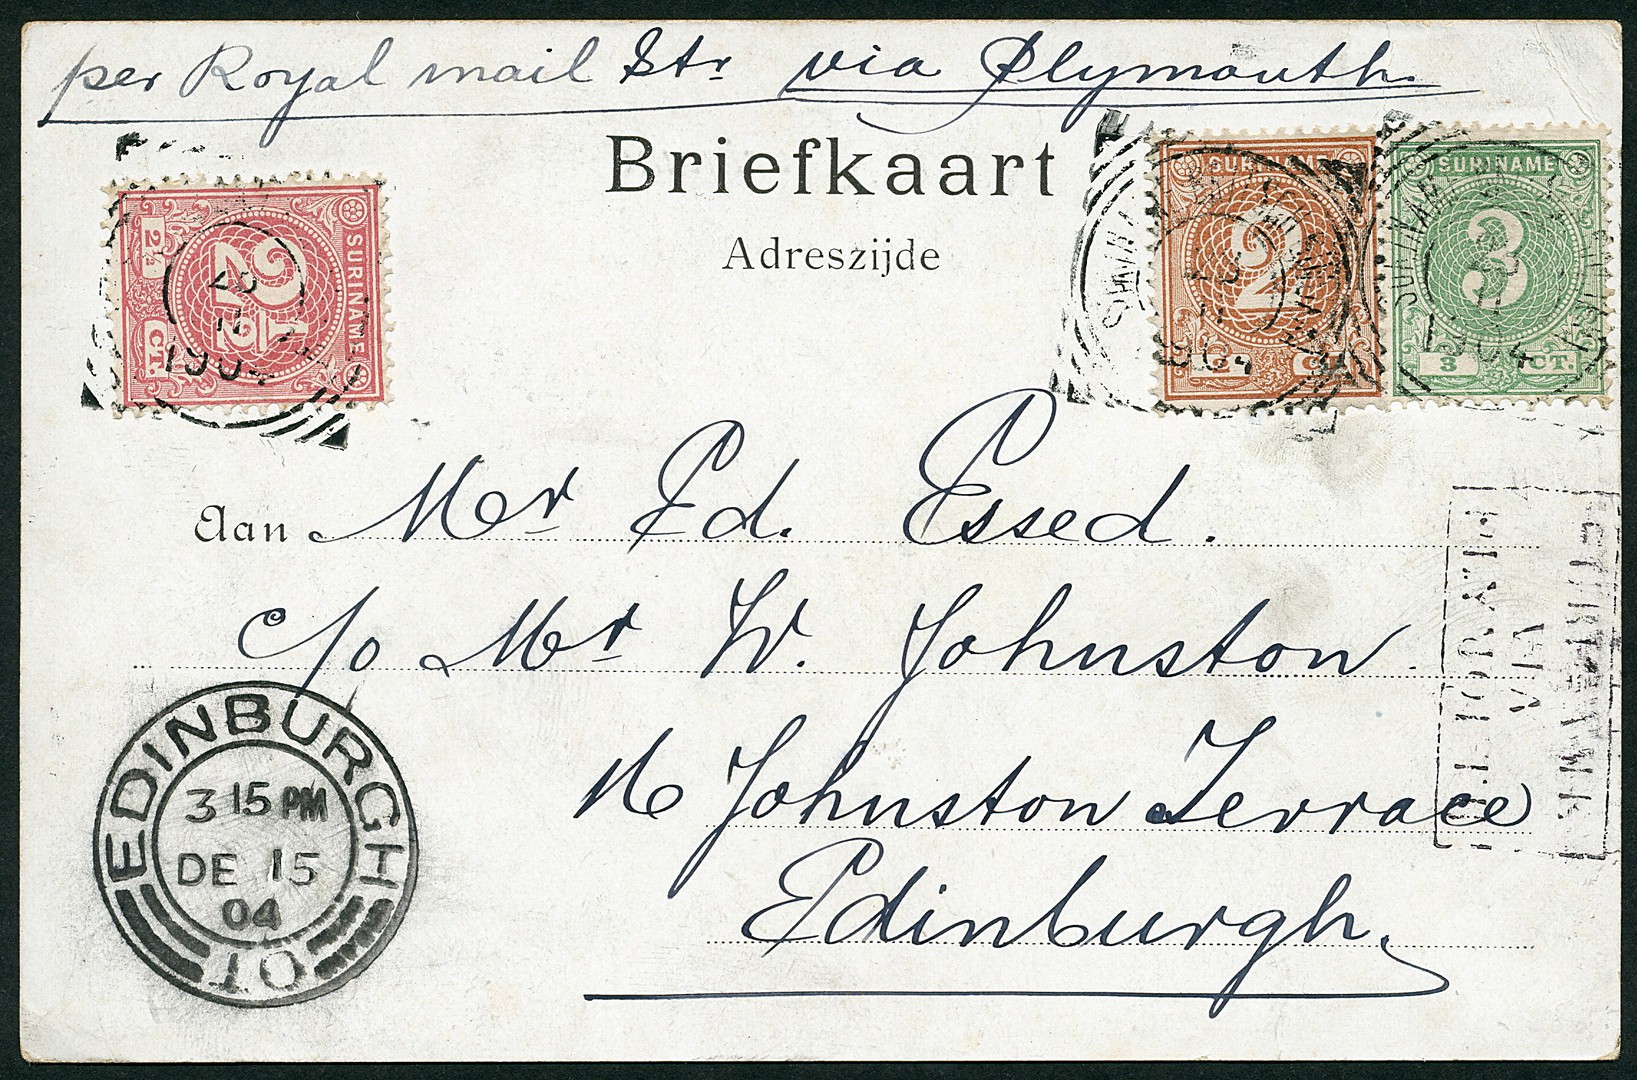 per Royal mail Str via Plymouth.
Briefkaart
Adreszijde
SURINAME
2½
2½ CT.
1904
SURINAME
2
CT.
1904
SURINAME
3
3 CT.
1904
Aan Mr Ed. Essed.
c/o Mr W. Johnston
Johnston Terrace
Edinburgh.
VIA
EDINBURGH
3 15 PM
DE 15
04
OT